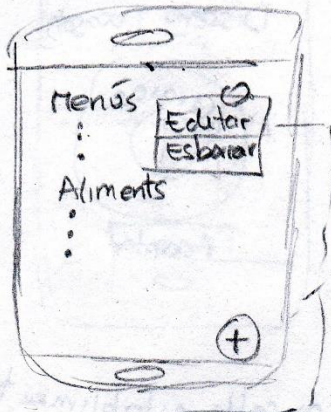 Menús
Editar
Esborrar
Aliments
+